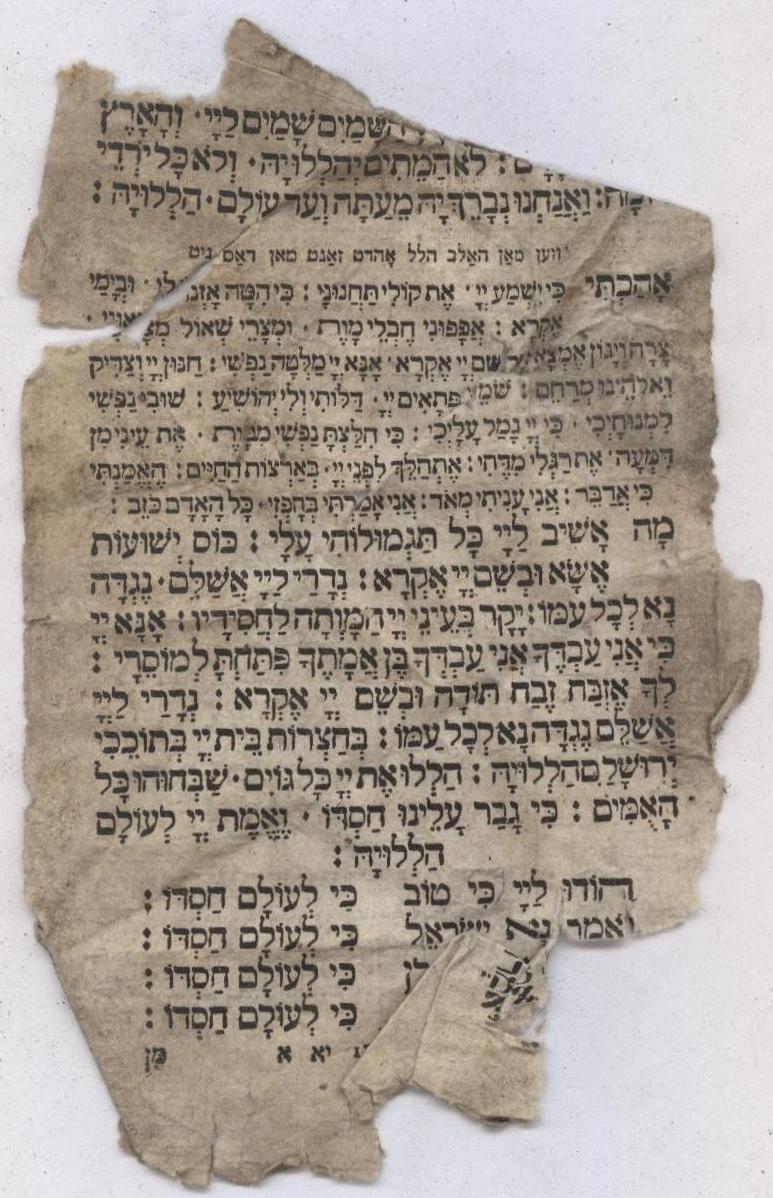 הַשָּׁמַיִם שָׁמַיִם לַיְיָ · וְהָאָרֶץ
לֹא הַמֵּתִים יְהַלְלוּיָהּ · וְלֹא כָּל יֹרְדֵי
וַאֲנַחְנוּ נְבָרֵךְ יָהּ מֵעַתָּה וְעַד עוֹלָם · הַלְלוּיָהּ :
ווען מאן האלב הלל אָהרט זאגט מאן דאס ניט
אָהַבְתִּי כִּי יִשְׁמַע יְיָ · אֶת קוֹלִי תַּחֲנוּנָי : כִּי הִטָּה אָזְנוֹ לִי · וּבְיָמַי
אֶקְרָא : אֲפָפוּנִי חֶבְלֵי מָוֶת · וּמְצָרֵי שְׁאוֹל מְצָאוּנִי ·
צָרָה וְיָגוֹן אֶמְצָא : שֵׁם יְיָ אֶקְרָא · אָנָּא יְיָ מַלְּטָה נַפְשִׁי : חַנּוּן יְיָ וְצַדִּיק
וֵאלֹהֵינוּ מְרַחֵם : שֹׁמֵר פְּתָאיִם יְיָ · דַּלּוֹתִי וְלִי יְהוֹשִׁיעַ : שׁוּבִי נַפְשִׁי
לִמְנוּחָיְכִי · כִּי יְיָ גָּמַל עָלָיְכִי : כִּי חִלַּצְתָּ נַפְשִׁי מִמָּוֶת · אֶת עֵינִי מִן
דִּמְעָה · אֶת רַגְלִי מִדֶּחִי : אֶתְהַלֵּךְ לִפְנֵי יְיָ · בְּאַרְצוֹת הַחַיִּים : הֶאֱמַנְתִּי
כִּי אֲדַבֵּר : אֲנִי עָנִיתִי מְאֹד : אֲנִי אָמַרְתִּי בְחָפְזִי · כָּל הָאָדָם כֹּזֵב :
מָה אָשִׁיב לַיְיָ כָּל תַּגְמוּלוֹהִי עָלָי : כּוֹס יְשׁוּעוֹת
אֶשָּׂא וּבְשֵׁם יְיָ אֶקְרָא : נְדָרַי לַיְיָ אֲשַׁלֵּם · נֶגְדָּה
נָּא לְכָל עַמּוֹ : יָקָר בְּעֵינֵי יְיָ הַמָּוְתָה לַחֲסִידָיו : אָנָּא יְיָ
כִּי אֲנִי עַבְדֶּךָ אֲנִי עַבְדְּךָ בֶּן אֲמָתֶךָ פִּתַּחְתָּ לְמוֹסֵרָי :
לְךָ אֶזְבַּח זֶבַח תּוֹדָה וּבְשֵׁם יְיָ אֶקְרָא : נְדָרַי לַיְיָ
אֲשַׁלֵּם נֶגְדָּה נָּא לְכָל עַמּוֹ : בְּחַצְרוֹת בֵּית יְיָ בְּתוֹכֵכִי
יְרוּשָׁלַםִ הַלְלוּיָהּ : הַלְלוּ אֶת יְיָ כָּל גּוֹיִם · שַׁבְּחוּהוּ כָּל
הָאֻמִּים : כִּי גָבַר עָלֵינוּ חַסְדּוֹ · וֶאֱמֶת יְיָ לְעוֹלָם
הַלְלוּיָהּ :
הוֹדוּ לַיְיָ כִּי טוֹב כִּי לְעוֹלָם חַסְדּוֹ :
יֹאמַר נָא יִשְׂרָאֵל כִּי לְעוֹלָם חַסְדּוֹ :
כִּי לְעוֹלָם חַסְדּוֹ :
כִּי לְעוֹלָם חַסְדּוֹ :
יא א מִן